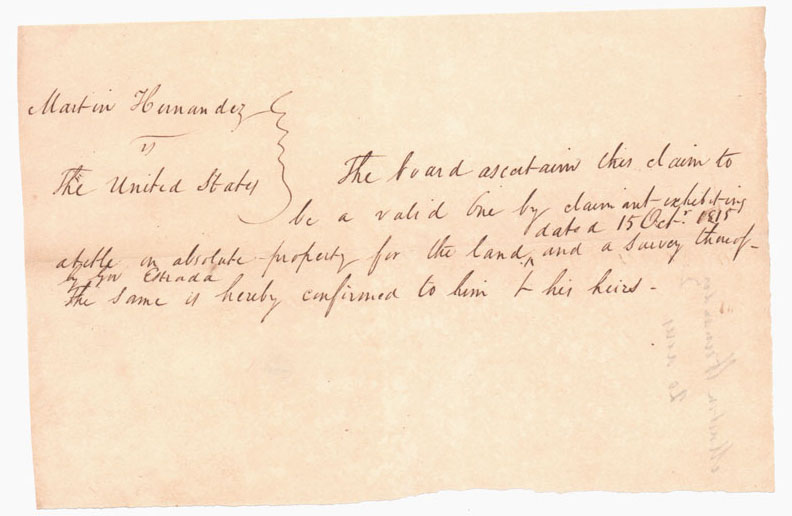 Martin Hernandez
vs
The United States
The board ascertain this claim to
be a valid one by claimant exhibiting
dated 15 Octr. 1815
a title in absolute property for the land ^ and a survey thereof -
by Gov Estrada
The same is hereby confirmed to him & his heirs -
Martin Hernandez